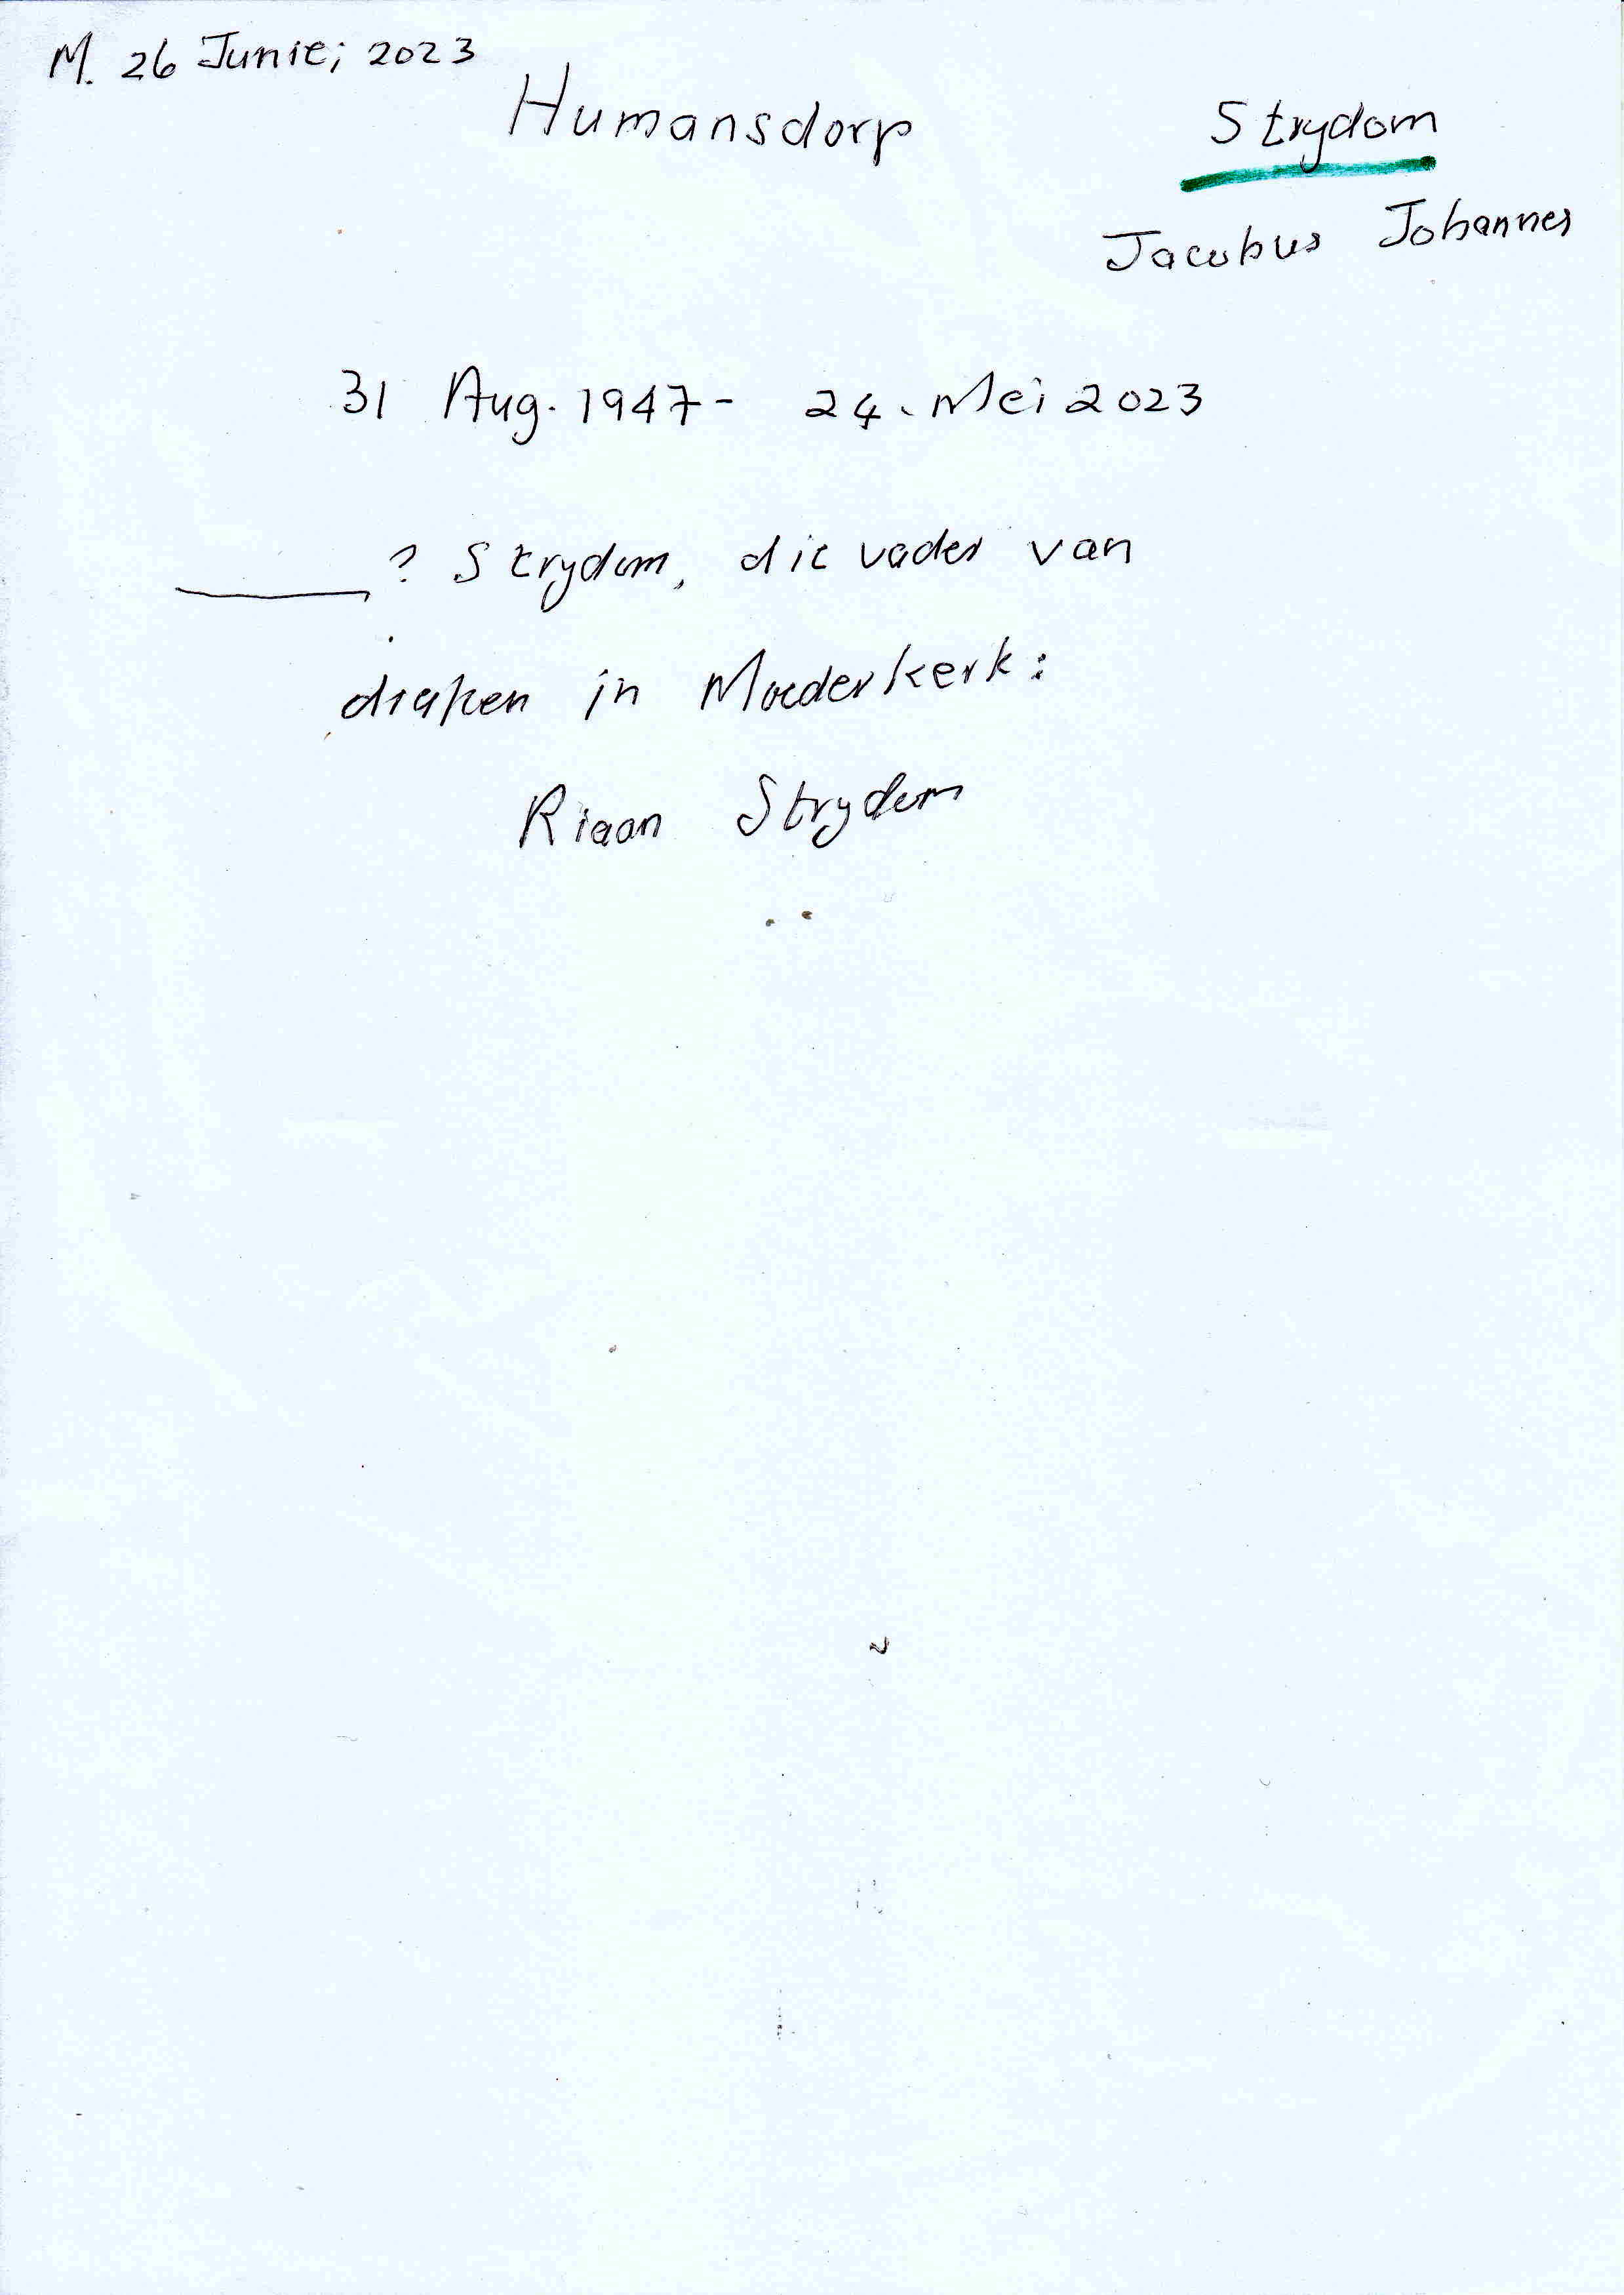 M. 26 Junie; 2023
Humansdorp
Strydom
Jacobus Johannes
31 Aug. 1947 - 24. Mei 2023
______? Strydom, die vader van
diaken in Moederkerk:
Riaan Strydom